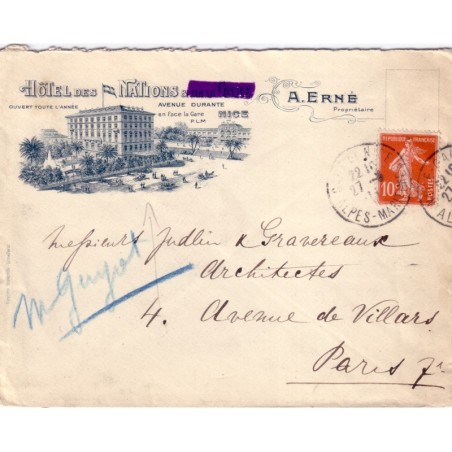 HÔTEL DES NATIONS
OUVERT TOUTE L'ANNÉE
AVENUE DURANTE
en face la Gare
P.L.M
NICE
A. ERNÉ
Propriétaire
RÉPUBLIQUE FRANÇAISE
10
POSTES
22
27
ALPES-MAR
22
27
AL
Messieurs Judlin & Gravereaux
Architectes
4. Avenue de Villars
Paris 7e
M Guyot